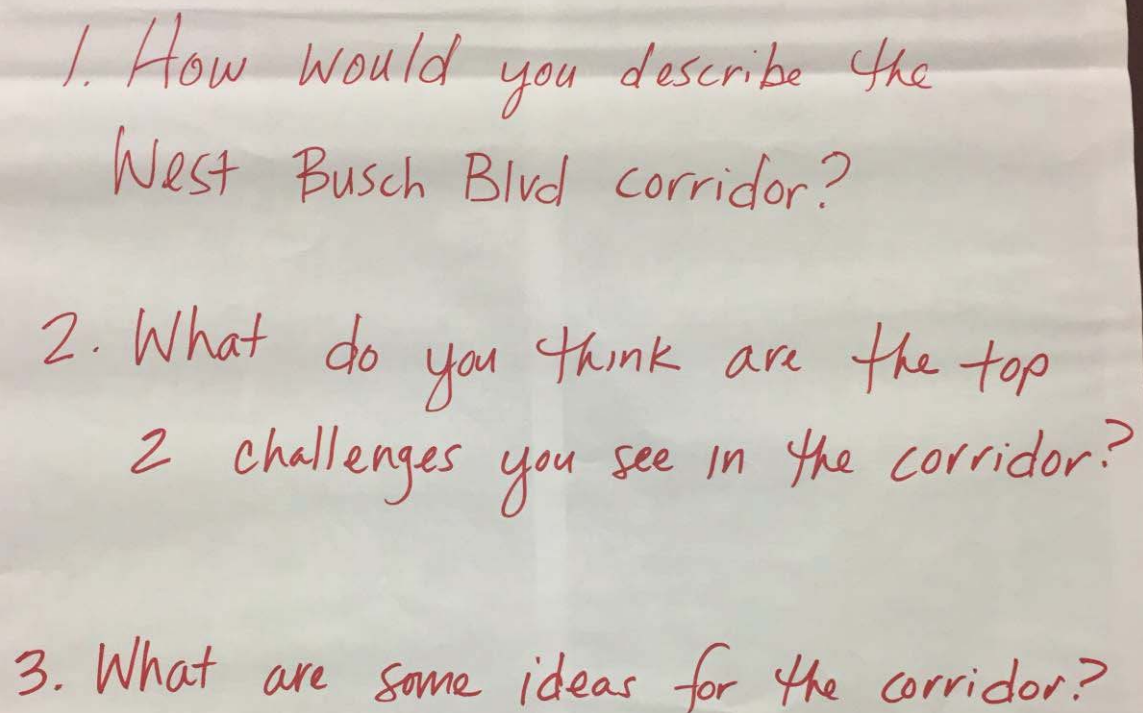 1. How would you describe the
West Busch Blvd corridor?
2. What do you think are the top
2 challenges you see in the corridor?
3. What are some ideas for the corridor?